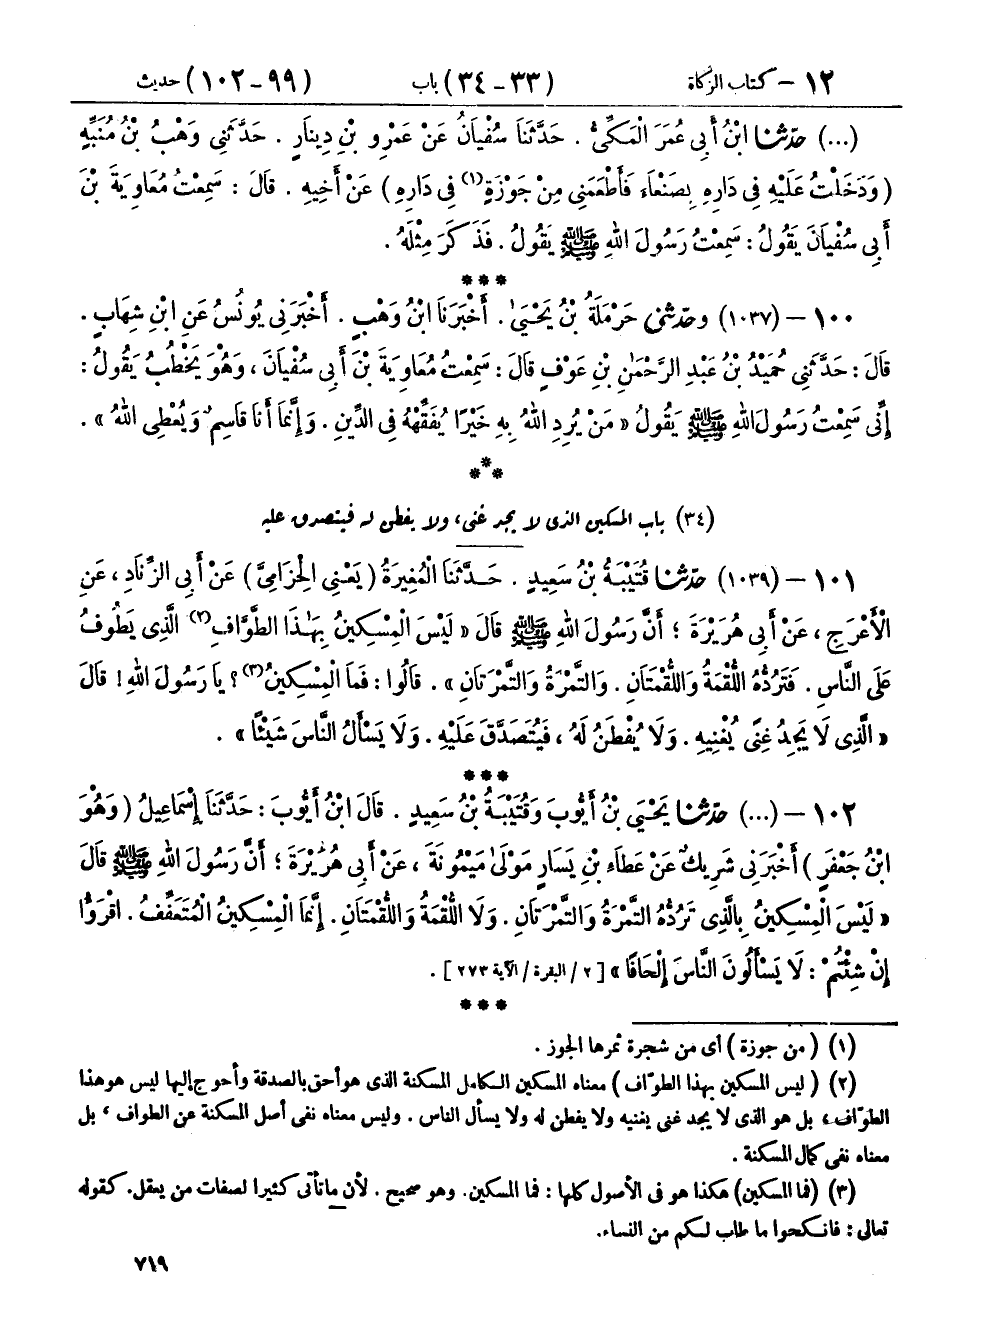 ١٢ – كتاب الزكاة (٣٣ – ٣٤) باب (٩٩ – ١٠٢) حديث
(...) حدّثنا ابْنُ أَبِي عُمَرَ الْمَكِّيُّ . حَدَّثَنَا سُفْيَانُ عَنْ عَمْرِو بْنِ دِينَارٍ . حَدَّثَنِي وَهْبُ بْنُ مُنَبِّهٍ
( وَدَخَلْتُ عَلَيْهِ فِي دَارِهِ بِصَنْعَاءَ فَأَطْعَمَنِي مِنْ جَوْزَةٍ(١) فِي دَارِهِ ) عَنْ أَخِيهِ . قَالَ : سَمِعْتُ مُعَاوِيَةَ بْنَ
أَبِي سُفْيَانَ يَقُولُ : سَمِعْتُ رَسُولَ اللهِ ﷺ يَقُولُ . فَذَكَرَ مِثْلَهُ .
***
١٠٠ – (١٠٣٧) وحدّثني حَرْمَلَةُ بْنُ يَحْيَىٰ . أَخْبَرَنَا ابْنُ وَهْبٍ . أَخْبَرَنِي يُونُسُ عَنِ ابْنِ شِهَابٍ .
قَالَ : حَدَّثَنِي حُمَيْدُ بْنُ عَبْدِ الرَّحْمَٰنِ بْنِ عَوْفٍ قَالَ : سَمِعْتُ مُعَاوِيَةَ بْنَ أَبِي سُفْيَانَ ، وَهُوَ يَخْطُبُ يَقُولُ :
إِنِّي سَمِعْتُ رَسُولَ اللهِ ﷺ يَقُولُ « مَنْ يُرِدِ اللهُ بِهِ خَيْرًا يُفَقِّهْهُ فِي الدِّينِ . وَإِنَّمَا أَنَا قَاسِمٌ وَيُعْطِي اللهُ » .
***
(٣٤) باب المسكين الذى لا يجد غنى، ولا يفطن له فيتصدق عليه
١٠١ – (١٠٣٩) حدّثنا قُتَيْبَةُ بْنُ سَعِيدٍ . حَدَّثَنَا الْمُغِيرَةُ ( يَعْنِي الْحِزَامِيَّ ) عَنْ أَبِي الزِّنَادِ ، عَنِ
الْأَعْرَجِ ، عَنْ أَبِي هُرَيْرَةَ ؛ أَنَّ رَسُولَ اللهِ ﷺ قَالَ « لَيْسَ الْمِسْكِينُ بِهَٰذَا الطَّوَّافِ(٢) الَّذِي يَطُوفُ
عَلَى النَّاسِ . فَتَرُدُّهُ اللُّقْمَةُ وَاللُّقْمَتَانِ . وَالتَّمْرَةُ وَالتَّمْرَتَانِ » . قَالُوا : فَمَا الْمِسْكِينُ(٣) ؟ يَا رَسُولَ اللهِ ! قَالَ
« الَّذِي لَا يَجِدُ غِنًى يُغْنِيهِ . وَلَا يُفْطَنُ لَهُ ، فَيُتَصَدَّقَ عَلَيْهِ . وَلَا يَسْأَلُ النَّاسَ شَيْئًا » .
***
١٠٢ – (...) حدّثنا يَحْيَى بْنُ أَيُّوبَ وَقُتَيْبَةُ بْنُ سَعِيدٍ . قَالَ ابْنُ أَيُّوبَ : حَدَّثَنَا إِسْمَاعِيلُ ( وَهُوَ
ابْنُ جَعْفَرٍ ) أَخْبَرَنِي شَرِيكٌ عَنْ عَطَاءِ بْنِ يَسَارٍ مَوْلَىٰ مَيْمُونَةَ ، عَنْ أَبِي هُرَيْرَةَ ؛ أَنَّ رَسُولَ اللهِ ﷺ قَالَ
« لَيْسَ الْمِسْكِينُ بِالَّذِي تَرُدُّهُ التَّمْرَةُ وَالتَّمْرَتَانِ . وَلَا اللُّقْمَةُ وَاللُّقْمَتَانِ . إِنَّمَا الْمِسْكِينُ الْمُتَعَفِّفُ . اقْرَؤُا
إِنْ شِئْتُمْ : لَا يَسْأَلُونَ النَّاسَ إِلْحَافًا » [ ٢ / البقرة / الآية ٢٧٣ ] .
***
(١) ( من جوزة ) أى من شجرة ثمرها الجوز .
(٢) ( ليس المسكين بهذا الطوّاف ) معناه المسكين الكامل المسكنة الذى هو أحق بالصدقة وأحوج إليها ليس هو هذا
الطوّاف، بل هو الذى لا يجد غنى يغنيه ولا يفطن له ولا يسأل الناس . وليس معناه نفى أصل المسكنة عن الطواف ، بل
معناه نفى كمال المسكنة .
(٣) (فما المسكين) هكذا هو فى الأصول كلها : فما المسكين. وهو صحيح . لأن ما تأتى كثيرا لصفات من يعقل. كقوله
تعالى : فانكحوا ما طاب لكم من النساء.
٧١٩